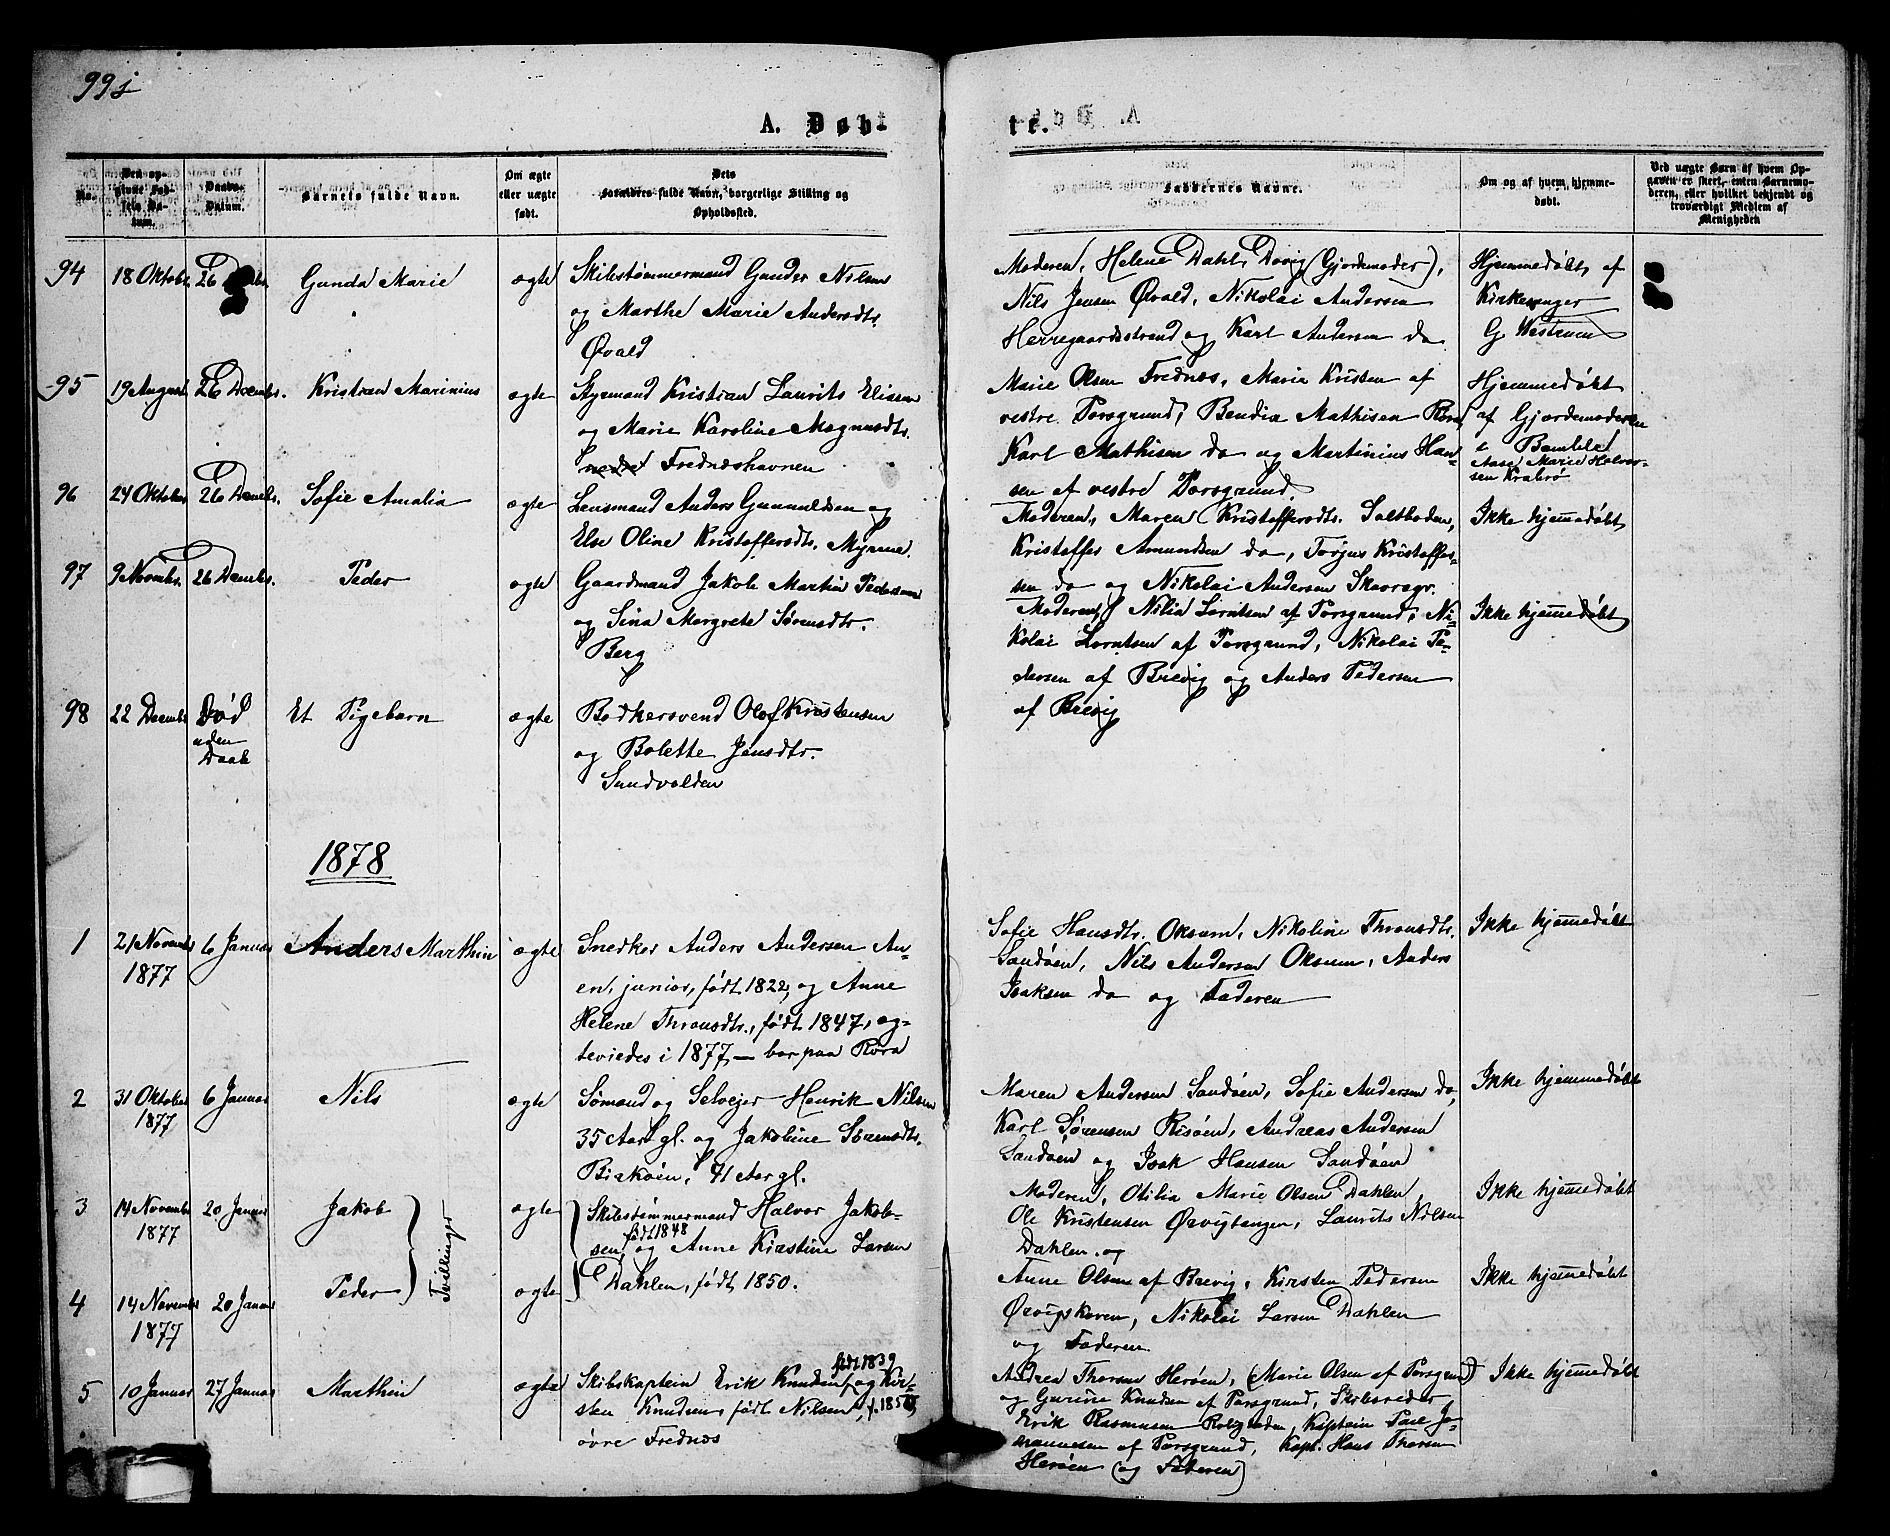 99j
A. Døb-
te.
No.
Den opgivne Fødsels Datum.
Daabs-Datum.
Barnets fulde Navn.
Om ægte eller uægte født.
Dets Forældres fulde Navn, borgerlige Stilling og Opholdssted.
Faddernes Navne.
Om og af hvem hjemmedøbt.
Ved uægte Børn af hvem Opgaven er skeet, enten Barnemoderen, eller hvilket bekjendt og troværdigt Medlem af Menigheden
94 18 Oktobr. 26 Gunda Marie ægte Skibstømmermand Gunder Nilsen
og Marthe Marie Andersdtr.
Øvald
Moderen, Helene Dahl, (Gjordemoder),
Nils Jensen Øvald, Nikolai Andersen
Herregaardsstrand og Karl Andersen do
Hjemmedøbt af
Kirkesanger
G. Westrum
95 19 August 26 Decembr. Kristian Marinius ægte Styrmand Kristian Laurits Eliasen
og Marie Karoline Magnusdtr.
nedre Frednæshavnen
Marie Olsen Frednæs, Marie Kristen af
vestre Porsgrund, Bendia Mathisen Røra
Karl Mathisen do og Martinius Han-
sen af vestre Porsgrund.
Hjemmedøbt
af Gjordemoderen
i Bamble
Aase Marie Halvor-
sen Krabrø
96 24 Oktobr 26 Decembr. Sofie Amalia ægte Lensmand Anders Gunnuldsen og
Else Oline Kristoffersdtr. Myrene.
Moderen, Maren Kristoffersdtr. Saltboden,
Kristoffer Amundsen do, Torjus Kristoffer-
sen do og Nikolai Andersen Skavragr.
Ikke hjemmedøbt
97 9 Novembr. 26 Decembr. Peder ægte Gaardmand Jakob Martin Pedersen
og Sina Margrete Sørensdtr.
Berg
Moderen, Nilia Lorntsen af Porsgrund, Ni-
kolai Lorntsen af Porsgrund, Nikolai Pe-
dersen af Brevig og Anders Pedersen
af Brevig
Ikke hjemmedøbt
98 22 Decembr Død
uden
Daab
Et Pigebarn ægte Bødkersvend Olof Kristensen
og Bolette Jensdtr.
Sundvolden
1878
1 21 Novembr
1877
6 Januar Anders Marthin ægte Snedker Anders Andersen An-
en, junior, født 1822, og Anne
Helene Thronsdtr., født 1847, æg-
teviedes i 1877, — bor paa Røra
Sofie Hansdtr. Oksum, Nikoline Thronsdtr.
Sandøen, Nils Andersen Oksum, Anders
Isaksen do og Faderen
Ikke hjemmedøbt
2 31 Oktober
1877
6 Januar Nils ægte Sømand og Selveier Henrik Nilsen
35 Aar gl. og Jakobine Sørensdtr.
Birkøen, 41 Aar gl.
Maren Andersen Sandøen, Sofie Andersen do,
Karl Sørensen Risøen, Andreas Andersen
Sandøen og Isak Hansen Sandøen
Ikke hjemmedøbt
3 14 Novembr
1877
20 Januar Jakob ægte
Tvillinger
Skibstømmermand Halvor Jakob-
sen, født 1848 og Anne Kirstine Larsen
Dahlen, født 1850.
Moderen, Otilia Marie Olsen Dahlen
Ole Kristensen Ørvigtangen, Laurits Nilsen
Dahlen og
Ikke hjemmedøbt
4 14 Novembr
1877
20 Januar Peder ægte
Anne Olsen af Brevig, Kirsten Pedersen
Ørvigskoven, Nikolai Larsen Dahlen
og Faderen
Ikke hjemmedøbt
5 10 Januar 27 Januar Marthin ægte Skibskaptein Erik Knudsen, født 1839 og Kir-
sten Knudsen, født Nilsen,
øvre Frednæs
Andrea Thorsen Herøen, (Marie Olsen af Porsgrund)
og Gurine Knudsen af Porsgrund, Skibsreder
Erik Rasmussen Kaptein Paul Jo-
hannesen af Porsgrund, Kapt. Hans Thorsen
Herøen (og Faderen)
Ikke hjemmedøbt